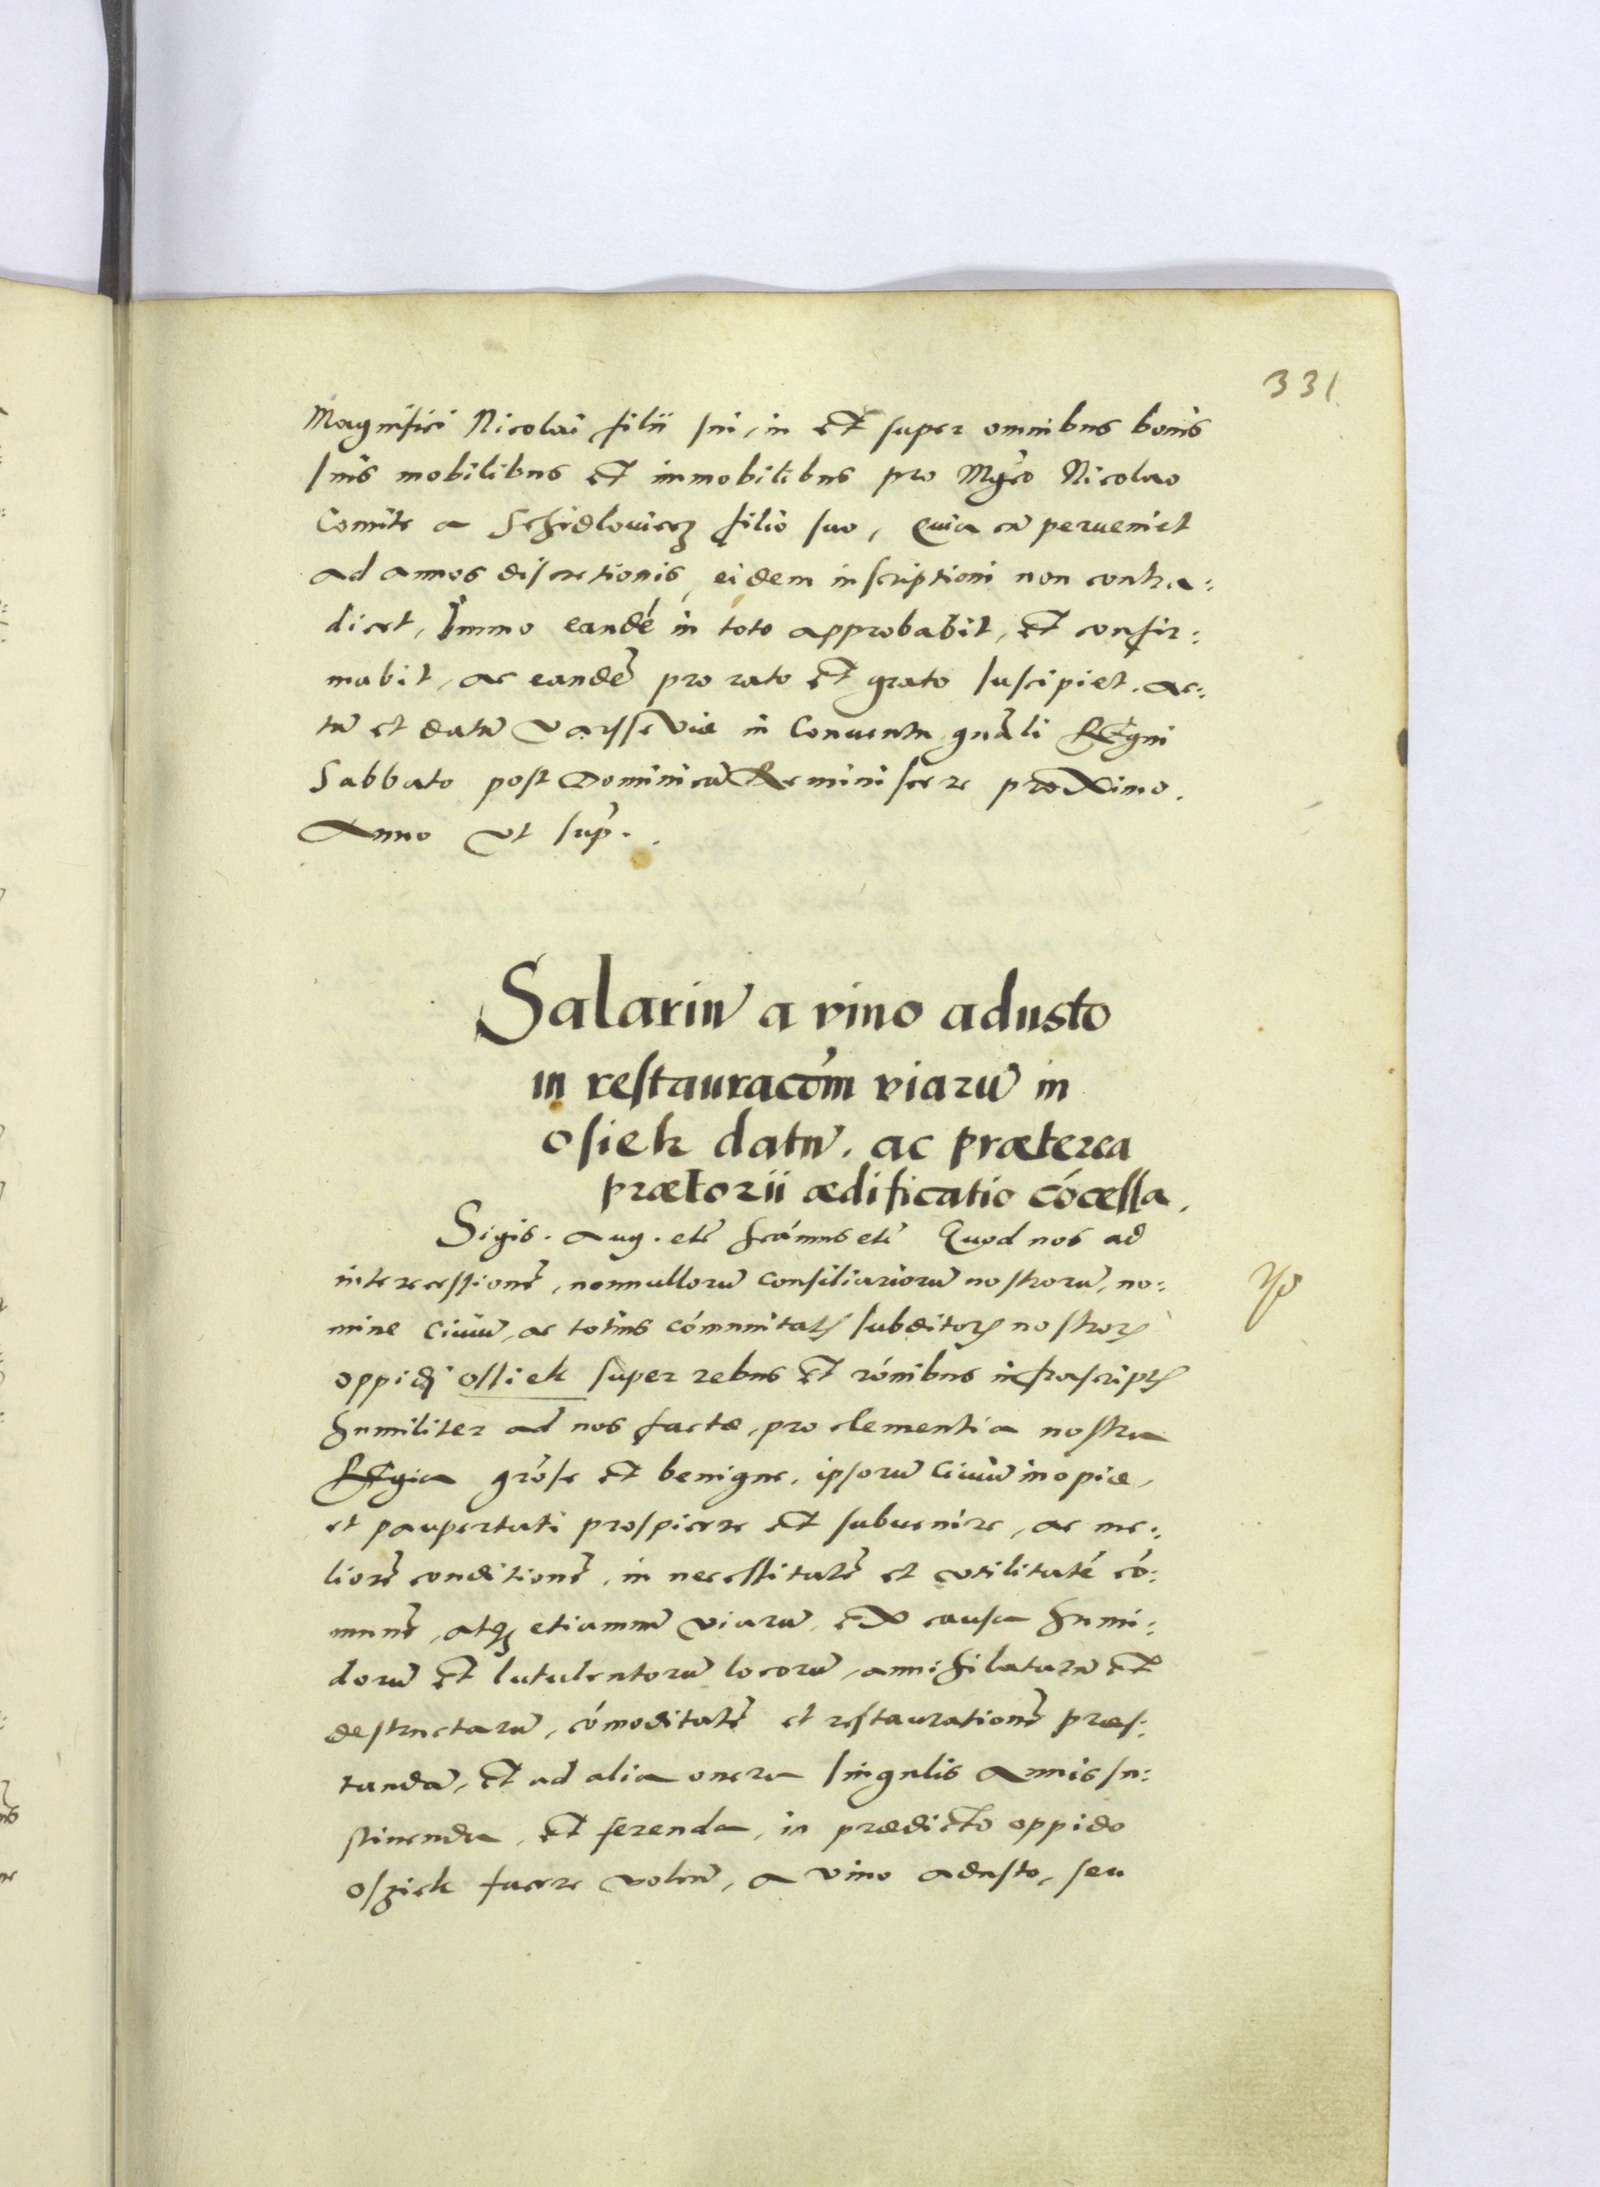 331
Magnifici Nicolai filii sui, in et super omnibus bonis
suis mobilibus et immobilibus pro Mgco Nicolao
Comite a Schidlouiecz filio suo, Quia cū perueniet
ad annos discretionis, eidem inscriptioni non contra:
dicet, Immo eandé in toto approbabit, et confir:
mabit, ac eandē pro rato et grato suscipiet. Ac:
tū et datū Varsseviæ in Conuentu gnāli Regni
Sabbato post Dominicā Reminiscere proximo.
Anno vt sup.
Salariū a vino adusto
in restauracóm viarū in
Osiek datū. ac præterea
prætorii ædificatio cócessa.
Sigis. Aug. etc̄ scámus etc̄ Quod nos ad
intercessionē, nonnullorū consiliariorū nostrorū, no:
mine Ciuiū, ac totius cómunitatꝭ subditorꝝ nostrorꝝ
oppidj Ossiek super rebus et rónibus infrascriptꝭ
humiliter ad nos factæ, pro clementia nostra
Regia gróse et benigne, ipsorū Ciuiū inopiæ,
et paupertati prospicere et subuenire, ac me:
liorē conditionē, in necessitatē et vtilitaté có:
munē, atqꝫ etiamnū viarū, ex causa humi:
dorū et lutulentorū locorū, annihilatarū et
destructarū, cómoditatē et restaurationē præs:
tandā, et ad alia onera singulis Annis su:
stinenda, et ferenda, in prædicto oppido
Osziek facere volen̄, a vino adusto, seu